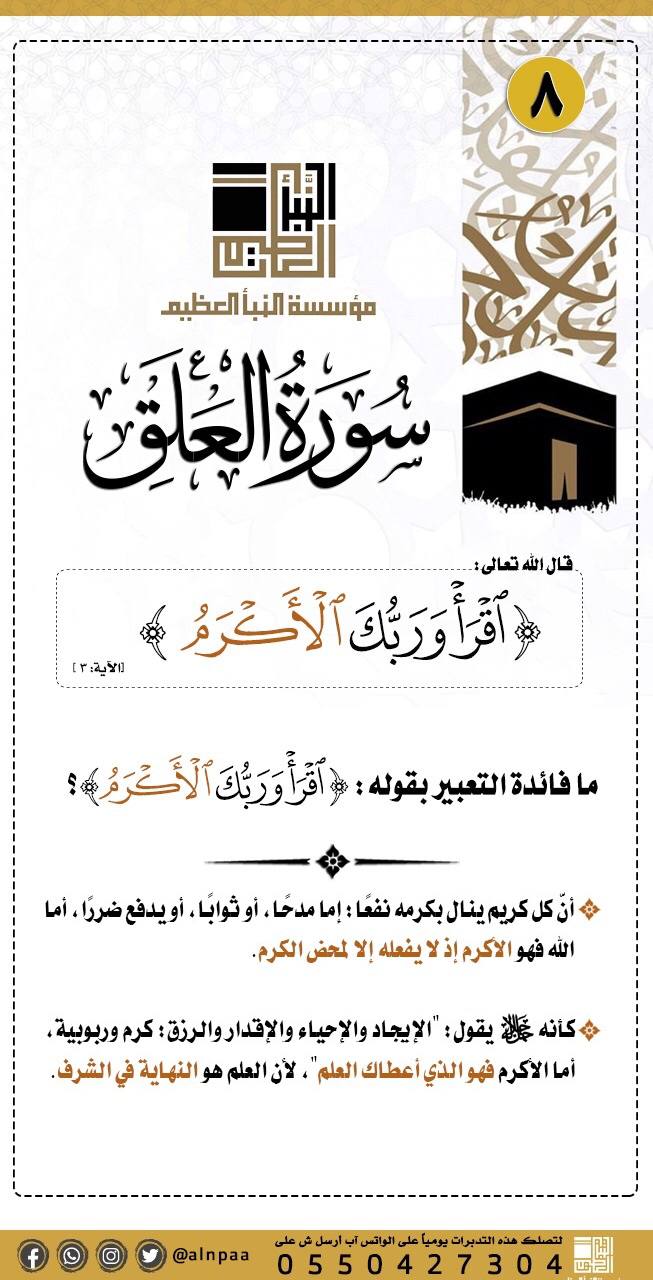 ٨
النبأ العظيم
مؤسسة النبأ العظيم
سُورَةُ العَلَقِ
قال الله تعالى:
﴿ ٱقۡرَأۡ وَرَبُّكَ ٱلۡأَكۡرَمُ ﴾
[الآية: ٣]
ما فائدة التعبير بقوله : ﴿ ٱقۡرَأۡ وَرَبُّكَ ٱلۡأَكۡرَمُ ﴾ ؟
أنّ كل كريم ينال بكرمه نفعًا : إما مدحًا ، أو ثوابًا ، أو يدفع ضررًا ، أما
الله فهو الاكرم إذ لا يفعله إلا لمحض الكرم.
كأنه ﷻ يقول : "الإيجاد والإحياء والإقدار والرزق : كرم وربوبية ،
أما الأكرم فهو الذي أعطاك العلم" ، لأن العلم هو النهاية في الشرف.
لتصلك هذه التدبرات يومياً على الواتس آب ارسل ش على
0550427304
@alnpaa